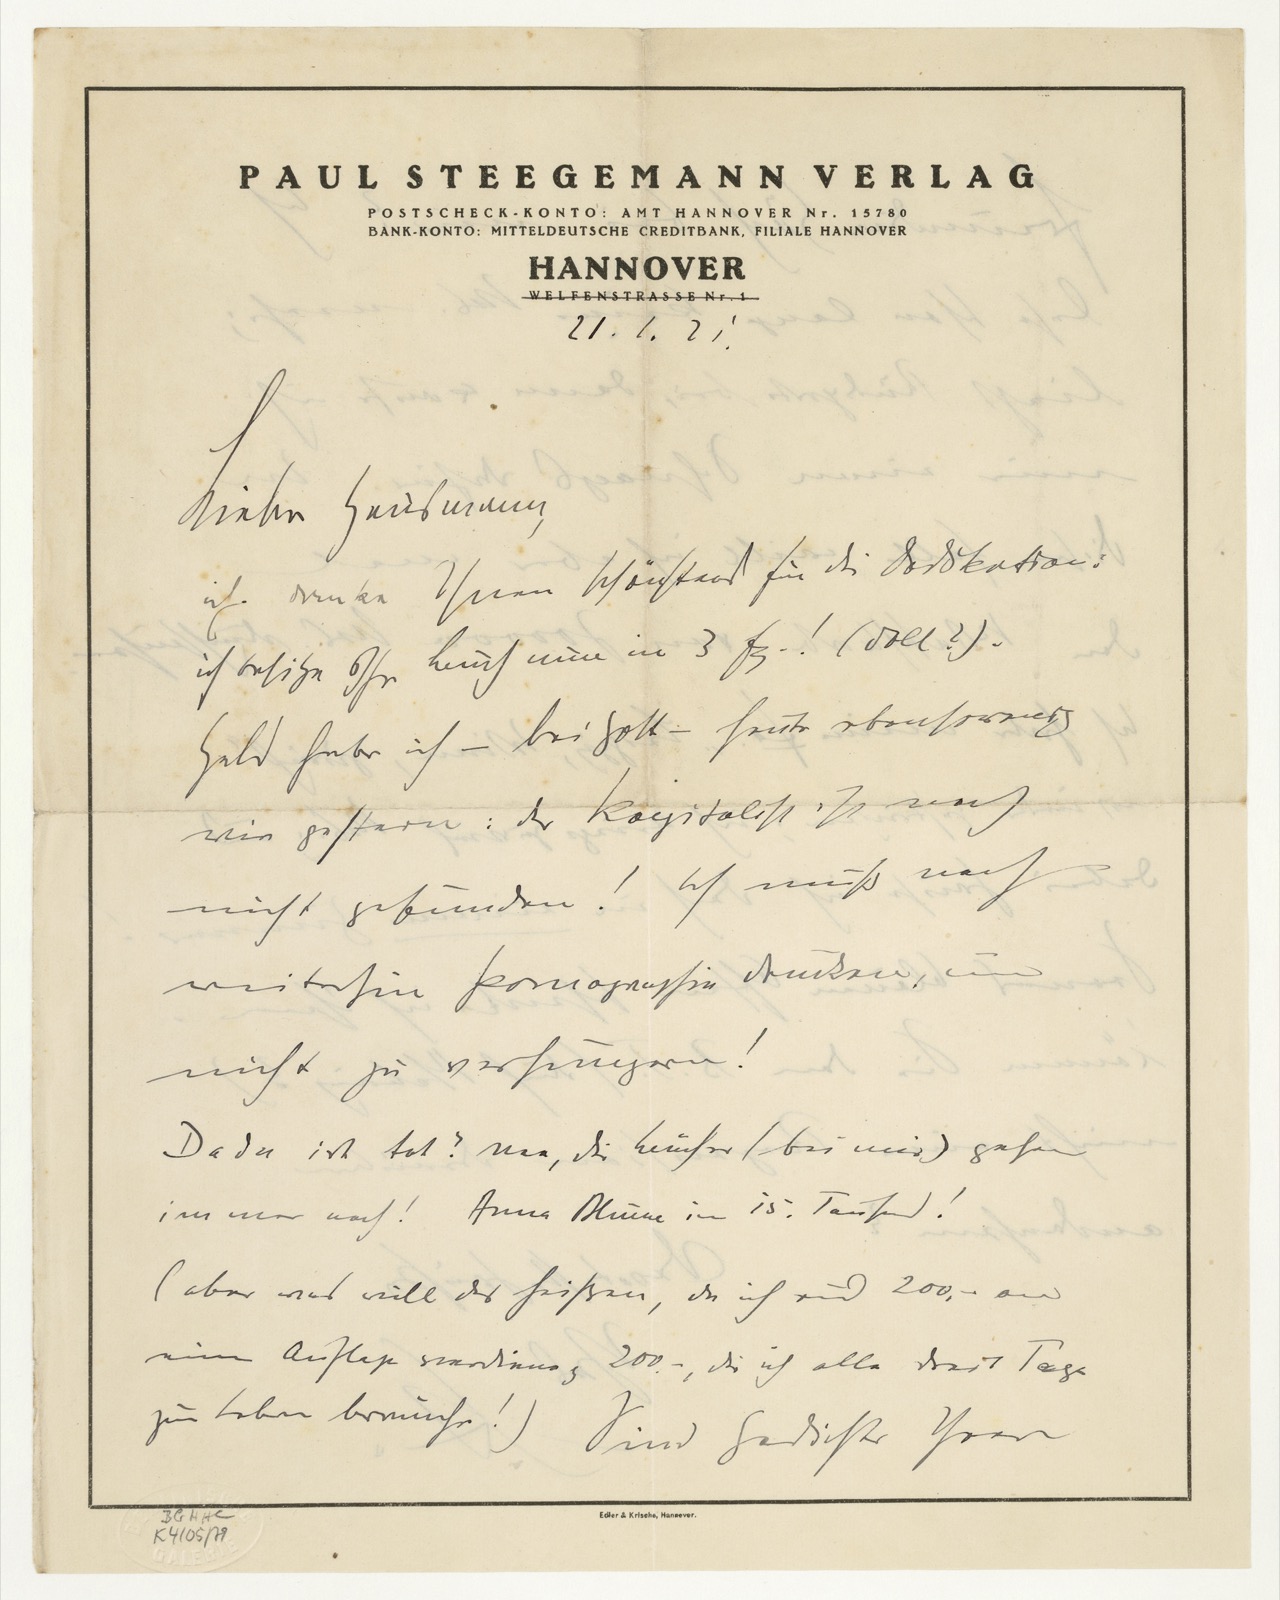 PAUL STEEGEMANN VERLAG
POSTSCHECK-KONTO: AMT HANNOVER Nr. 15780
BANK-KONTO: MITTELDEUTSCHE CREDITBANK, FILIALE HANNOVER
HANNOVER
WELFENSTRASSE Nr. 1
21. 1. 21.
Lieber Hausmann,
ich danke Ihnen schönstens für die Dedikation:
ich besitze Ihr Buch nun in 3 (doll?).
Geld habe ich – bei Gott – heute ebensowenig
wie gestern: der Kapitalist ist noch
nicht gefunden! Ich muß noch
weiterhin Pornographie drucken, um
nicht zu verhungern!
Dada ist tot? Nee, die Bücher (bei mir) gehen
immer noch! Anna Blume im 15. Tausend!
(aber was will das heißen, da ich 200,- an
einer Auflage verdiene, 200.-, die ich alle drei Tage
zum Leben brauche!) Sind Gedichte Ihrer
Edler & Krische, Hannover.
K4105/79